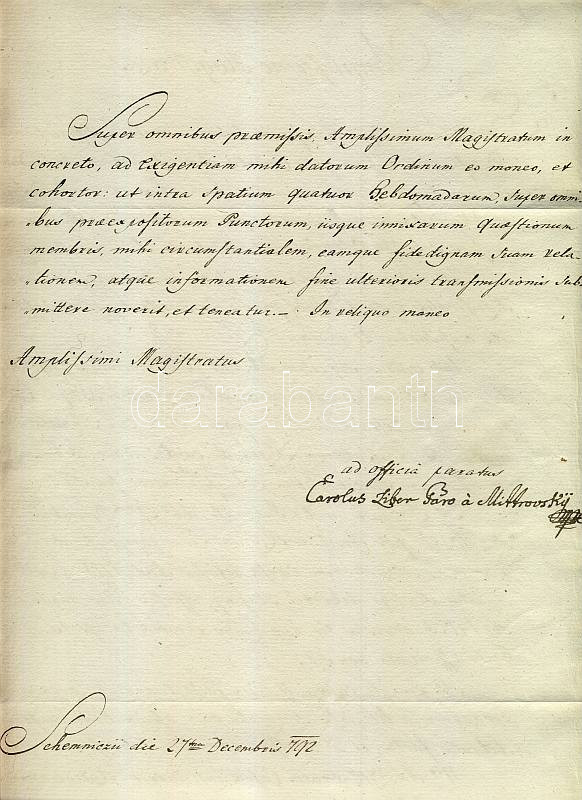 Super omnibus præmissis, Amplissimum Magistratum in
concreto, ad Exigentiam mihi datorum Ordinum eo moneo, et
cohortor: ut intra Spatium quatuor Hebdomadarum, super omni-
bus præexpositorum Punctorum, iisque innixarum Quæstionum
membris, mihi circumstantialem, eamque fide dignam Suam rela-
tionem, atque informationem fine ulterioris transmissionis Sub-
mittere noverit, et teneatur.- In reliquo maneo
Amplissimi Magistratus
darabanth
ad officia paratus
Carolus Liber Baro à Mittrovskÿ
Schemniczii die 27ma Decembris 792